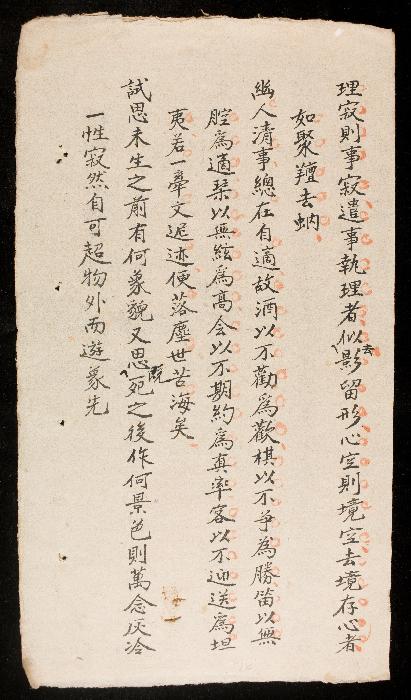 理寂則事寂遣事執理者似去影留形心空則境空去境存心者
如聚羶去蚋
幽人清事總在自適故酒以不勸為歡棋以不爭為勝笛以無
腔為適琹以無絃為高会以不期約為真率客以不迎送為坦
夷若一牽文泥迹便落塵世苦海矣
試思未生之前有何象貌又思既死之後作何景色則萬念灰冷
一性寂然自可超物外而遊象先